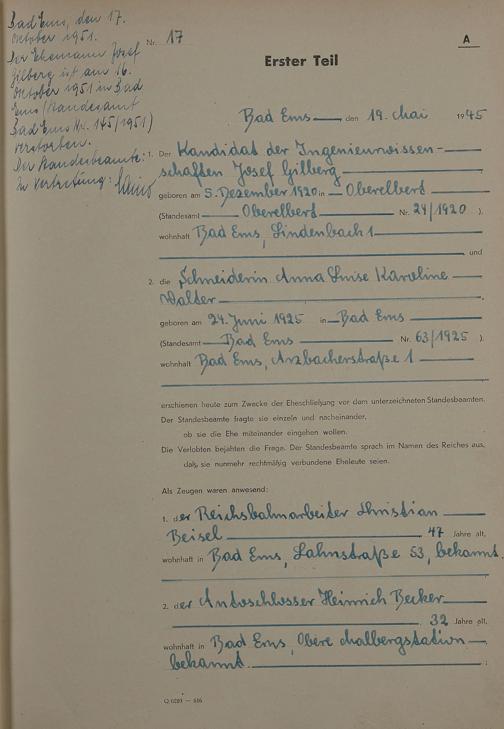 Bad Ems, den 17.
Oktober 1951.
Der Ehemann Josef
Gilberg ist am 16.
Oktober 1951 in Bad
Ems (Standesamt
Bad Ems Nr. 145/1951)
verstorben.
Der Standesbeamte:
In Vertretung:
Nr. 17
A
Erster Teil
Bad Ems, den 19. Mai 1945
1. Der Kandidat der Ingenieurwissen-
schaften Josef Gilberg
geboren am 5. Dezember 1920 in Oberelbert
(Standesamt Oberelbert Nr. 24/1920).
wohnhaft Bad Ems, Lindenbach 1
und
2. die Schneiderin Anna Luise Karoline
Walter
geboren am 24. Juni 1925 in Bad Ems
(Standesamt Bad Ems Nr. 63/1925).
wohnhaft Bad Ems, Arzbacherstraße 1
erschienen heute zum Zwecke der Eheschließung vor dem unterzeichneten Standesbeamten.
Der Standesbeamte fragte sie einzeln und nacheinander,
ob sie die Ehe miteinander eingehen wollen.
Die Verlobten bejahten die Frage. Der Standesbeamte sprach im Namen des Reiches aus,
daß sie nunmehr rechtmäßig verbundene Eheleute seien.
Als Zeugen waren anwesend:
1. der Reichsbahnarbeiter Christian
Beisel 47 Jahre alt,
wohnhaft in Bad Ems, Lahnstraße 53, bekannt.
2. der Autoschlosser Heinrich Becker
32 Jahre alt,
wohnhaft in Bad Ems, Obere Malbergstation
bekannt.